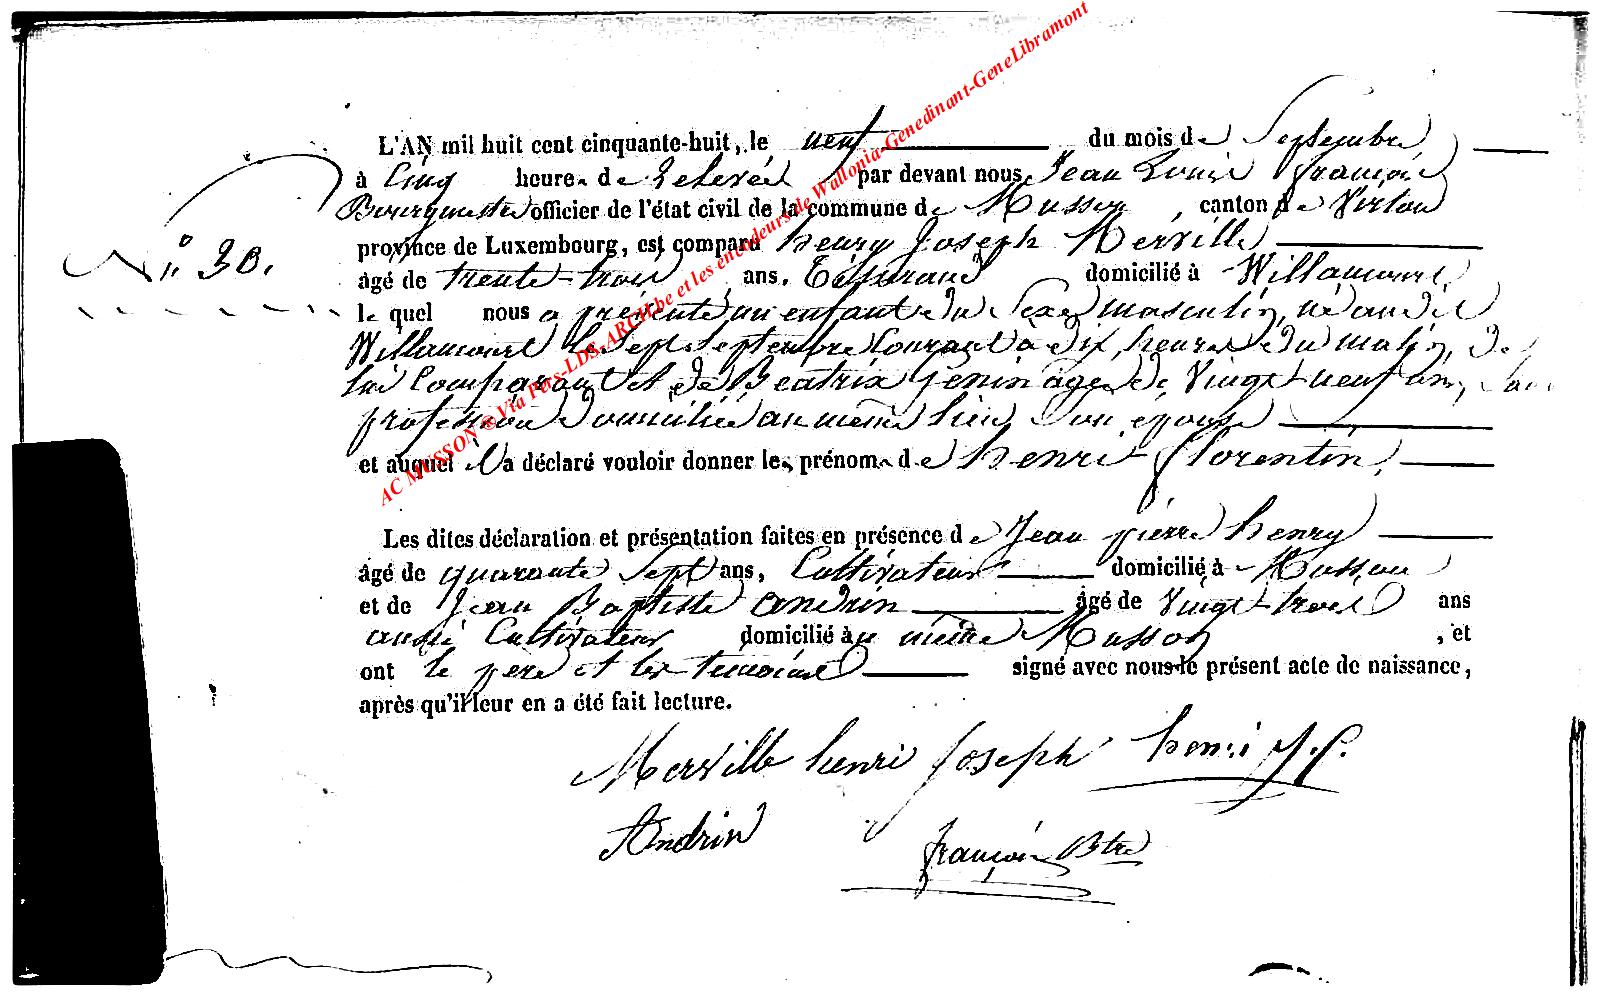 L'AN mil huit cent cinquante-huit, le neuf du mois de Septembre
à Cinq heures de Relevée par devant nous Jean Louis François
Bourgmestre officier de l'état civil de la commune de Musson, canton de Virton
province de Luxembourg, est comparu henry Joseph Merville
N° 30.
âgé de trente-trois ans, domicilié à Willancourt
le quel nous a présenté un enfant du Sexe masculin, né au dit
Willancourt le Sept Septembre Courant à dix heures du matin, de
lui Comparant et de Beatrix Jenin agée de Vingt-neuf ans, Sans
profession domiciliée au même lieu Son epouse
et auquel il a déclaré vouloir donner les prénoms de henri florentin.
Les dites déclaration et présentation faites en présence de Jean pierre henry
âgé de quarante Sept ans, Cultivateur domicilié à Musson
et de Jean Baptiste andrin âgé de Vingt-trois ans
aussi Cultivateur domicilié au même Musson, et
ont le pere et les temoins signé avec nous le présent acte de naissance,
après qu'il leur en a été fait lecture.
Merville henri Joseph henri J.P.
Andrin
françois Btre
AC MUSSON ® Via Pers-LDS-ARCH.be et les encodeurs de Wallonia-Genedinant-GeneLibramont